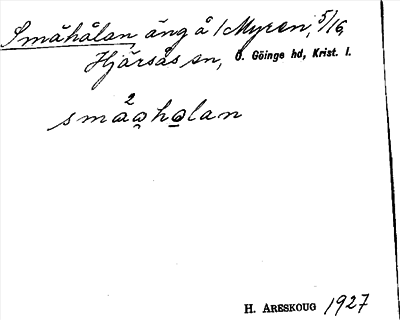 Småhålan äng å /Myren, 5/16,
Hjärsås sn, Ö. Göinge hd, Krist. l.
2
småo̯ho̲lan
H. ARESKOUG 1927